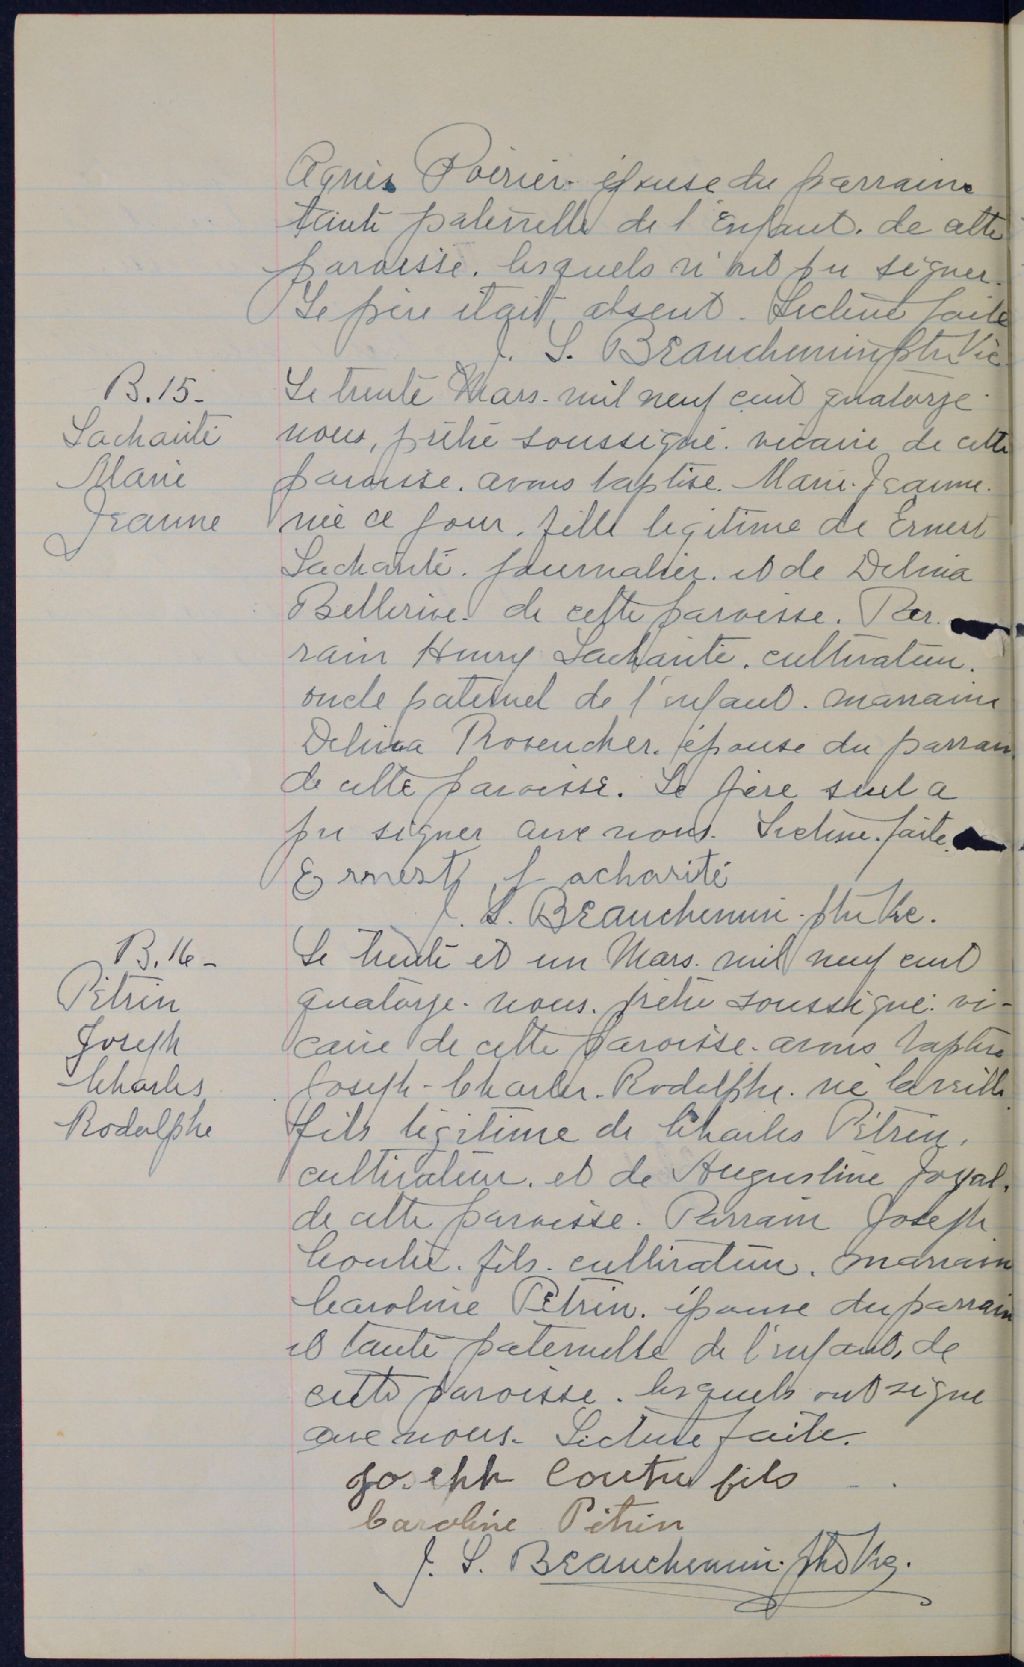 Agnès Poirier. épouse du parrain.
tante paternelle de l'Enfant. de cette
paroisse. lesquels n'ont pu signer.
Le père était absent. Lecture faite
J. S. Beauchemin ptre Vic
B. 15-
Lacharité
Marie
Jeanne
Le trente Mars. mil neuf cent quatorze.
nous, prêtre soussigné. vicaire de cette
paroisse. avons baptisé. Marie. Jeanne.
née ce jour. fille légitime de Ernest
Lacharité. journalier. et de Delima
Bellerive. de cette paroisse. Par.
rain Henry Lacharité. cultivateur.
oncle paternel de l'enfant. marraine
Delima Provencher. épouse du parrain
de cette paroisse. Le père seul a
pu signer avec nous. Lecture. faite.
Ernest Lacharité
J. S. Beauchemin. ptre Vic.
B. 16-
Pétrin
Joseph
Charles
Rodolphe
Le trente et un Mars. mil neuf cent
quatorze. nous. prêtre soussigné. vi-
caire de cette paroisse. avons baptisé
Joseph-Charles. Rodolphe. né la veille
fils légitime de Charles Pétrin,
cultivateur. et de Augustine Joyal.
de cette paroisse. Parrain Joseph
Coutu. fils. cultivateur. marraine
Caroline Pétrin. épouse du parrain
et tante paternelle de l'enfant, de
cette paroisse. lesquels ont signé
avec nous. Lecture faite.
Joseph Coutu fils
Caroline Pétrin
J. S. Beauchemin. ptre Vic.